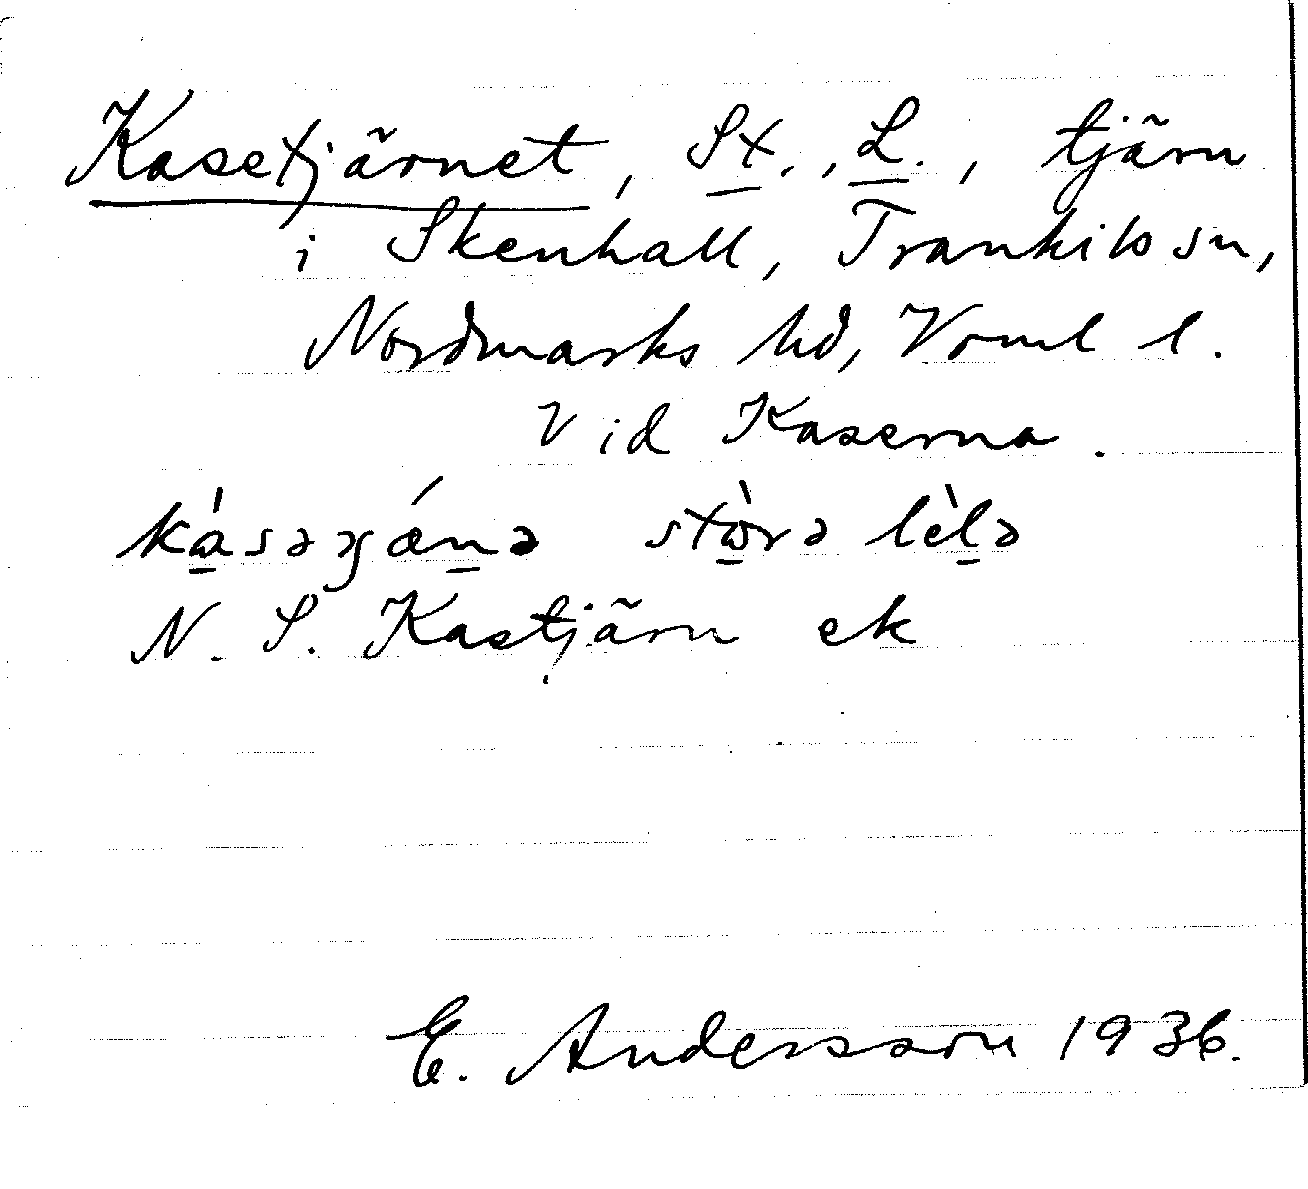 Kasetjärnet, St., L., tjärn
i Skenhall, Trankils sn,
Nordmarks hd, Vrml l.
Vid Kaserna.
kàsəɣǽnə stòrə lèlə
N. S. Kastjärn ek
E. Andersson 1936.